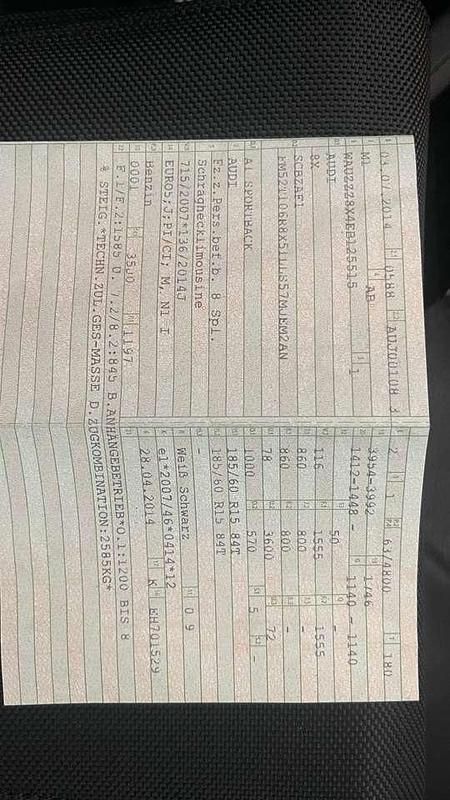 03.07.2014 0588 ADJ00108 3
M1 AB
WAUZZZ8X4EB125515 1
AUDI
8X
SCBZAF1
A1 SPORTBACK
AUDI
Fz.z.Pers.bef.b. 8 Spl.
Schräghecklimousine
715/2007*136/2014J
EURO5;J;PI/CI; M, N1 I
Benzin
0001 3500 1197
F.1/F.2:1585 U. 7.2/8.2:845 B.ANHÄNGEBETRIEB*O.1:1200 BIS 8
% STEIG.*TECHN.ZUL.GES-MASSE D.ZUGKOMBINATION:2585KG*
2 1 63/4800 180
3954-3992 1746
1412-1448 - 1140 - 1140
50 -
116 1555 1555
860 800 -
860 800 -
78 3600 72
1000 570 5 -
185/60 R15 84T
185/60 R15 84T
-
Weiß Schwarz 0 9
e1*2007/46*0414*12
28.04.2014 K EH701529